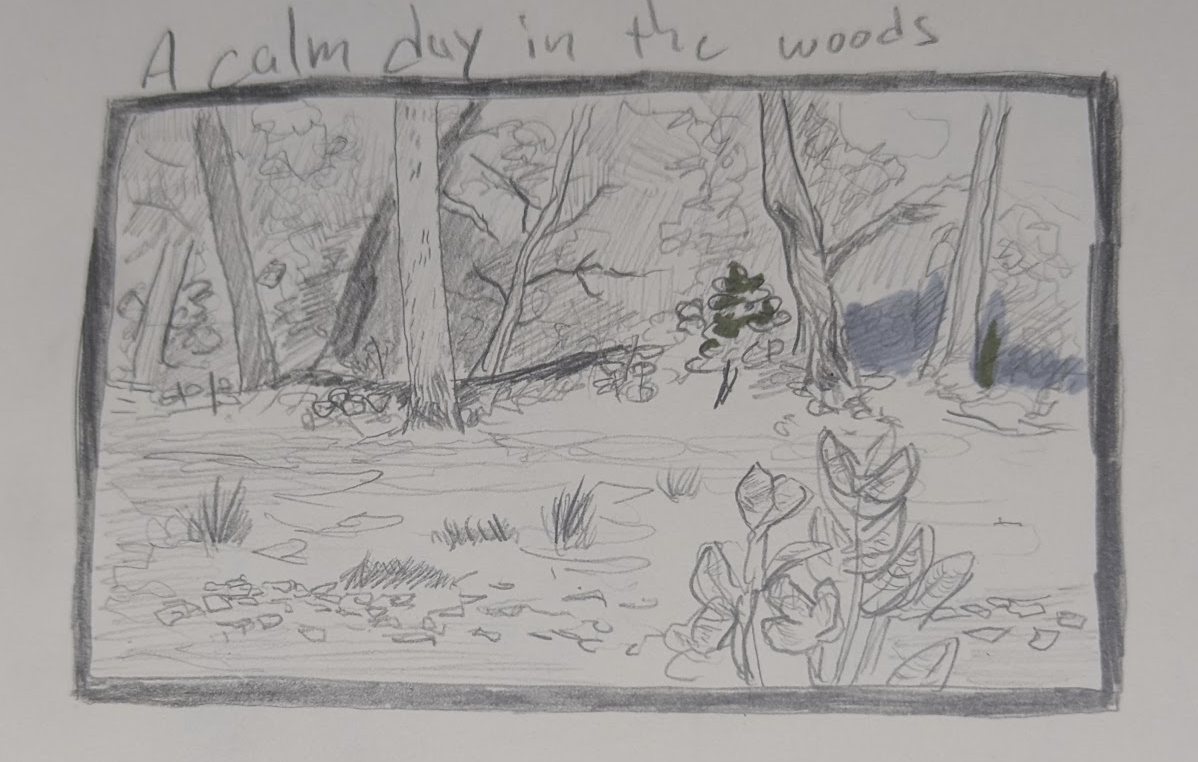 A calm day in the woods